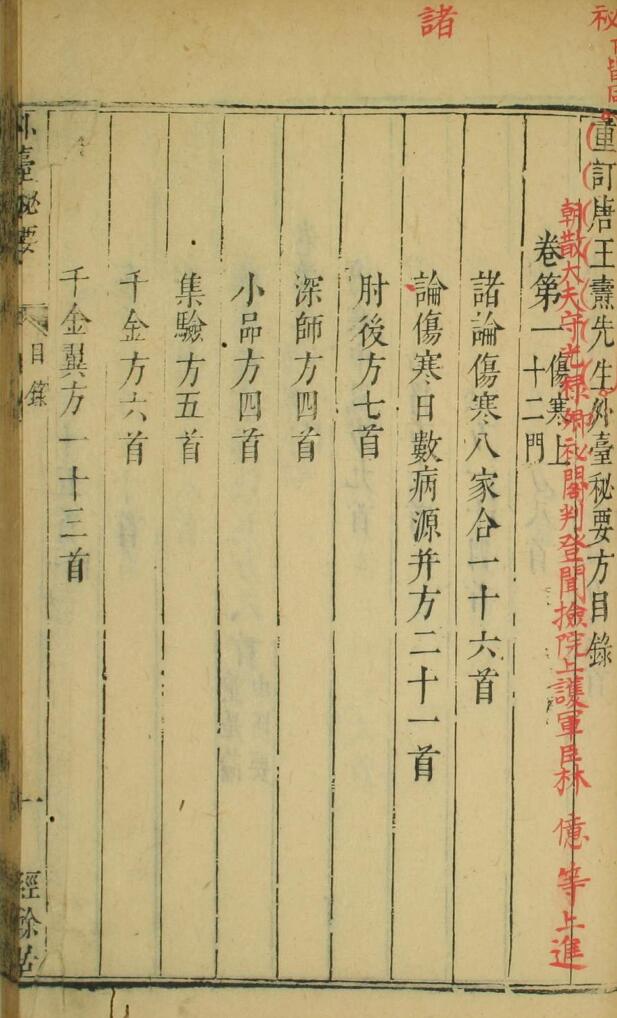 重訂唐王燾先生外臺秘要方目錄
朝散大夫守光祿卿祕閣判登聞撿院上護軍臣林 億等上進
卷第一 傷寒上 十二門
諸論傷寒八家合一十六首
論傷寒日數病源并方二十一首
肘後方七首
深師方四首
小品方四首
集驗方五首
千金方六首
千金翼方一十三首
外臺秘要 目錄 一 經餘居
諸
祕下皆同